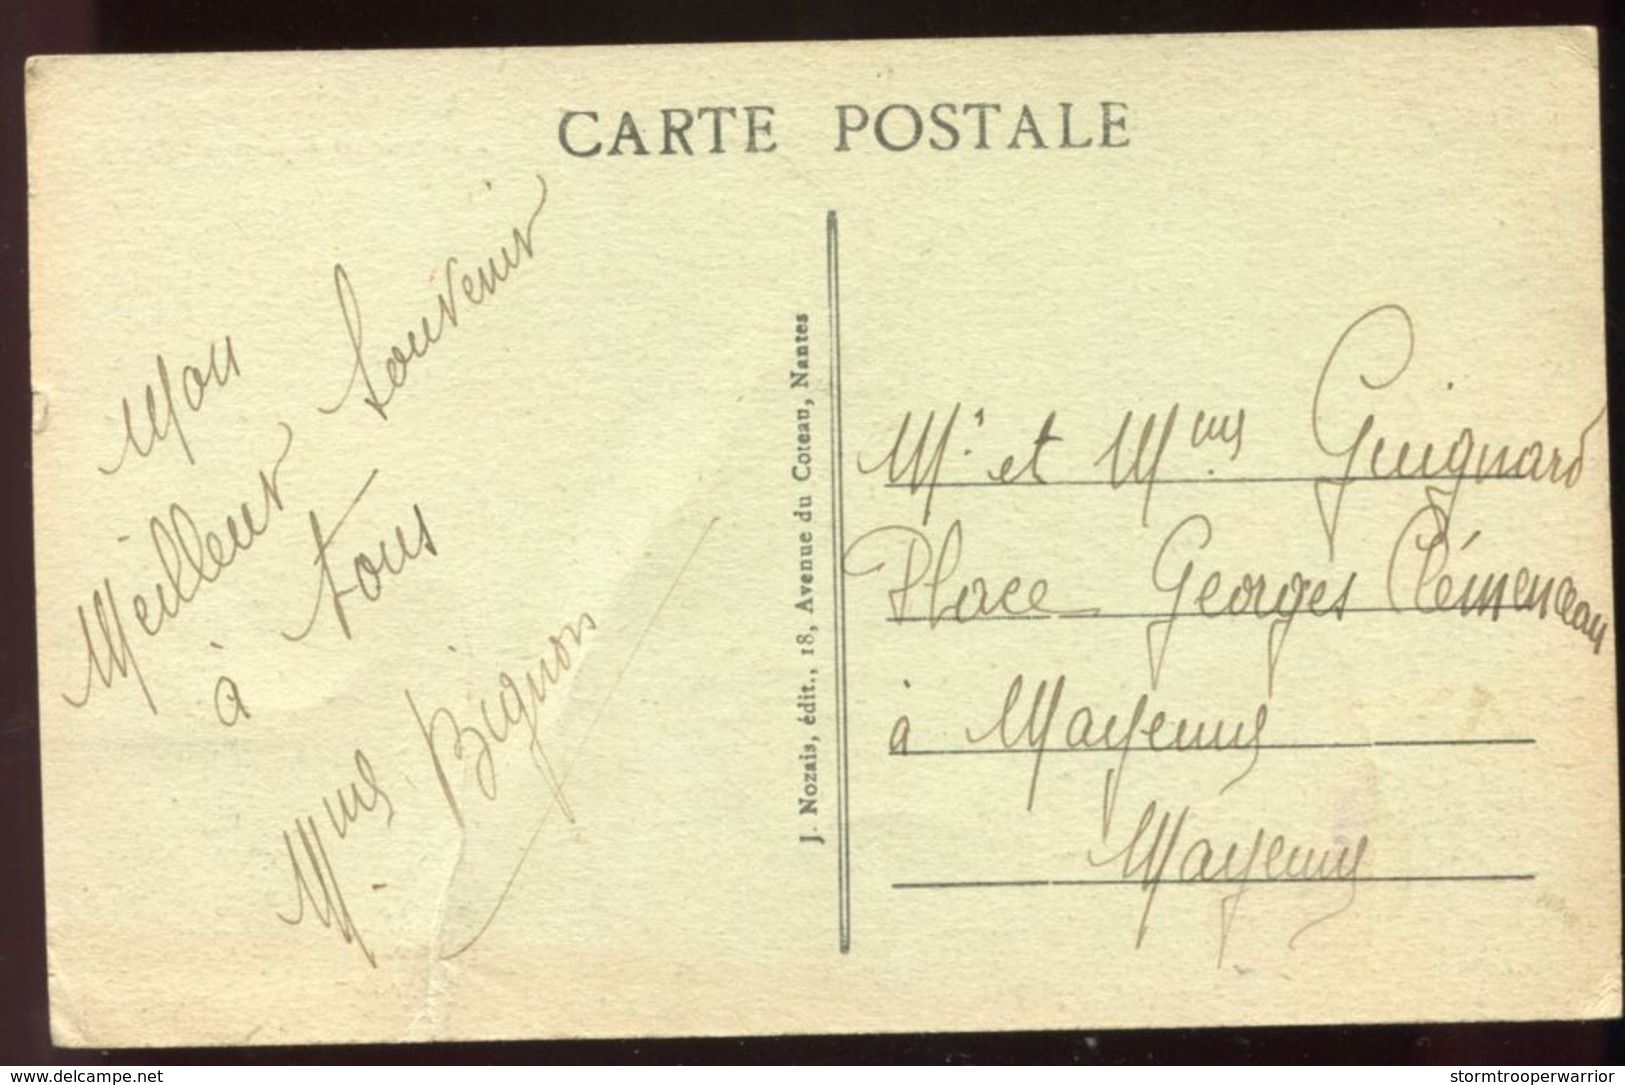 CARTE POSTALE
Mon
Meilleur Souvenir
à tous
Mme Bignon
J. Nozais, édit., 18, Avenue du Coteau, Nantes
Mr et Mme Guignard
Place Georges Clémenceau
à Mayenne
Mayenne
www.delcampe.net
stormtrooperwarrior